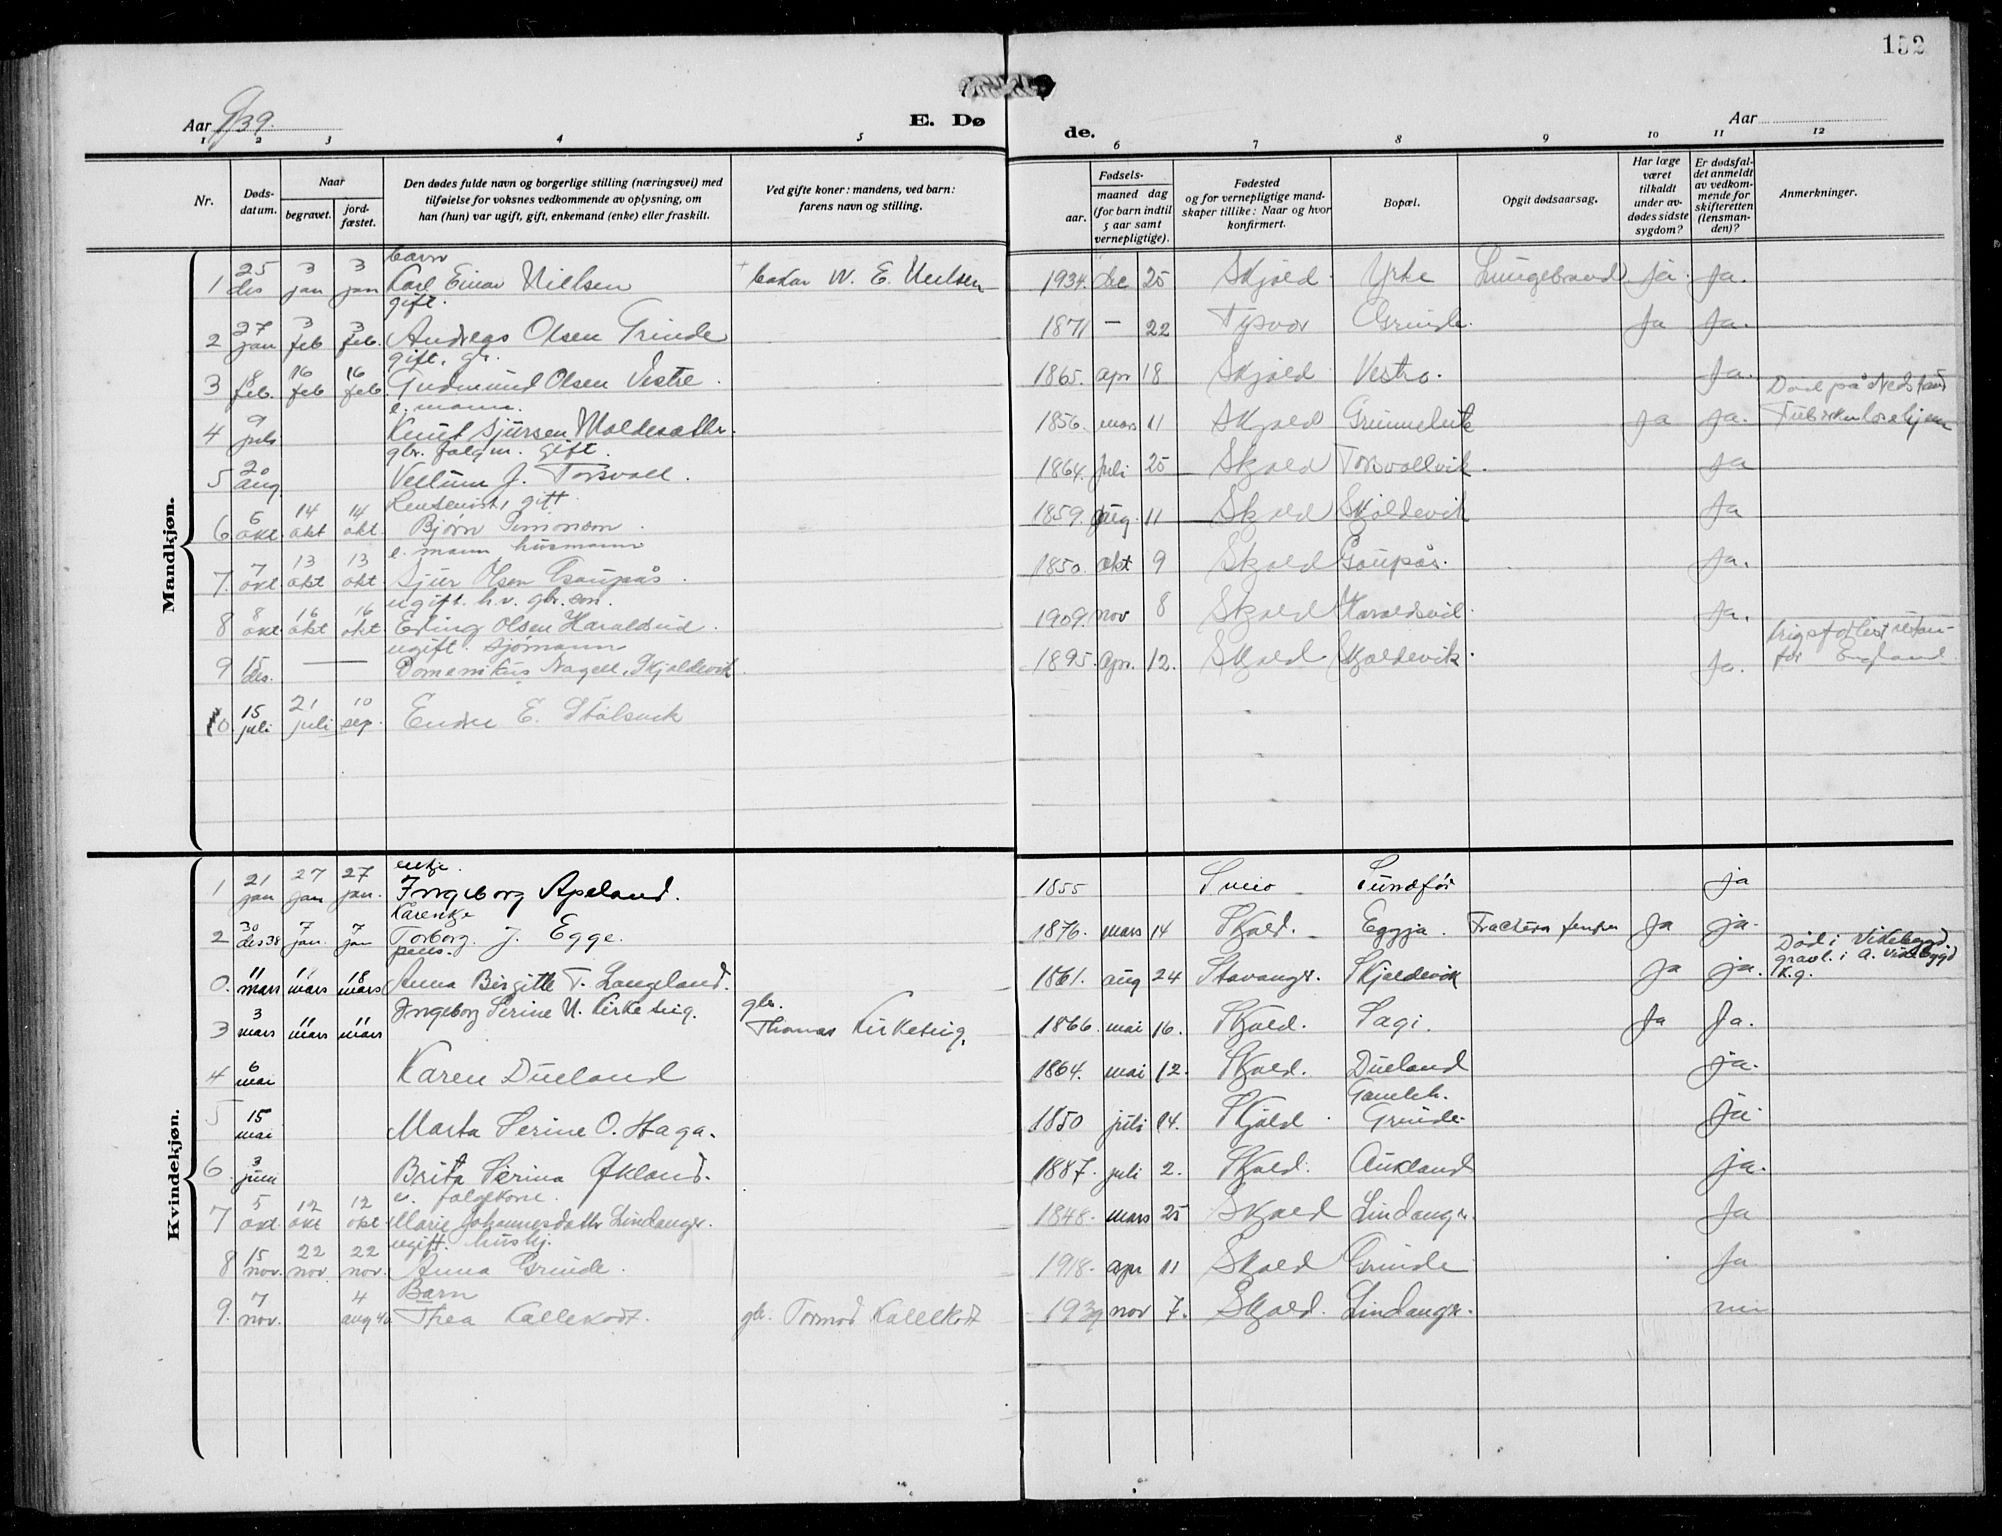 152
Aar 1939.
E. Døde.
Aar
1 2 3 4 5 6 7 8 9 10 11 12
Nr.
Døds-datum.
Naar
begravet.
jord-fæstet.
Den dødes fulde navn og borgerlige stilling (næringsvei) med
tilføielse for voksnes vedkommende av oplysning, om
han (hun) var ugift, gift, enkemand (enke) eller fraskilt.
Ved gifte koner: mandens, ved barn:
farens navn og stilling.
Fødsels-
aar.
maaned dag
(for barn indtil
5 aar samt
vernepligtige).
Fødested
og for vernepligtige mand-
skaper tillike: Naar og hvor
konfirmert.
Bopæl.
Opgit dødsaarsag.
Har læge
været
tilkaldt
under av-
dødes sidste
sygdom?
Er dødsfal-
det anmeldt
av vedkom-
mende for
skifteretten
(lensman-
den)?
Anmerkninger.
Mandkjøn.
barn
1 25 des 3 jan 3 jan Karl Einar Nielsen W. E. Nielsen 1934. dec 25 Skjold Yrke Lungebrand Ja Ja.
gift.
2 27 jan 3 feb 3 feb. Andreas Olsen Grinde 1871 — 22 Tysvær Grinde. Ja Ja.
gift, gbr.
3 8 feb. 16 feb 16 feb. Gudmund Olsen Vestre. 1865. apr 18 Skjold Vestre. Ja.
e. mann.
4 9 juli Knut Sjursen 1856. mars 11 Skjold Ja Ja. Død på Nedstrand
gbr. folgm. gift.
5 20 aug. J. Torsvoll. 1864. juli 25 Skjold Torsvollvik. Ja
gift
6 6 okt. 14 okt 14 okt. Bjørn Simonsen 1859. aug. 11 Skjold Skjoldevik Ja
e. mann husmann
7. 7 okt 13 okt 13 okt Sjur Olsen Gaupås. 1850. okt 9 Skjold Gaupås. Ja.
ugift. h.v. gbr. søn.
8 8 okt. 16 okt 16 okt. Erling Olsen Haraldseid. 1909. nov 8 Skjold Ja.
ugift. sjømann
9 15 des. — — Domenikus Nagell. Skjoldevik. 1895. apr. 12. Skjold Skjoldevik. Ja. krigsforlist utan-
for England
10. 15 juli 21 juli 10 sep. Endre E. Stølsvik
Kvindekjøn.
enkje.
1 21 jan 27 jan 27 jan. Ingeborg Apeland. 1855 Sveio Sundfør ja
2 30 des 38 7 jan. 7 jan Torborg J. Egge. 1876. mars 14 Skjold. Eggja. Ja ja.
pens.
0. 11 mars 11 mars 18 mars Anna Birgitte T. Langeland. 1861. aug 24 Stavanger. Skjoldevik Ja ja. Død i Vikebygd.
gravl. i A. Vikebygd
K.g.
3 3 mars 11 mars 11 mars Ingeborg Serine N. Kirketeig. gbr. Thomas Kirketeig. 1866. mai 16. Skjold. Fagi. Ja Ja.
4 6 mai Karen Dueland 1864. mai 12. Skjold. Dueland ja.
5 15 mai Marta Serine O. Haga. 1850 juli 14. Skjold Gamleh. Grinde. ja.
6 3 juni Brita Serina Økland. 1887. juli 2. Skjold. Aukland ja.
e. folgekone.
7 5 okt. 12 okt 12 okt Marie Johannesdatter Lindanger. 1848. mars 25 Skjold Lindanger. Ja
ugift. hushj.
8 15 nov. 22 nov 22 nov. Anna Grinde. 1918. apr 11 Skjold Grinde Ja
Barn
9. 7 nov. 4 aug 40 Thea Kallekodt. gbr. Tormod Kallekodt 1939 nov 7. Skjold. Lindanger. nei